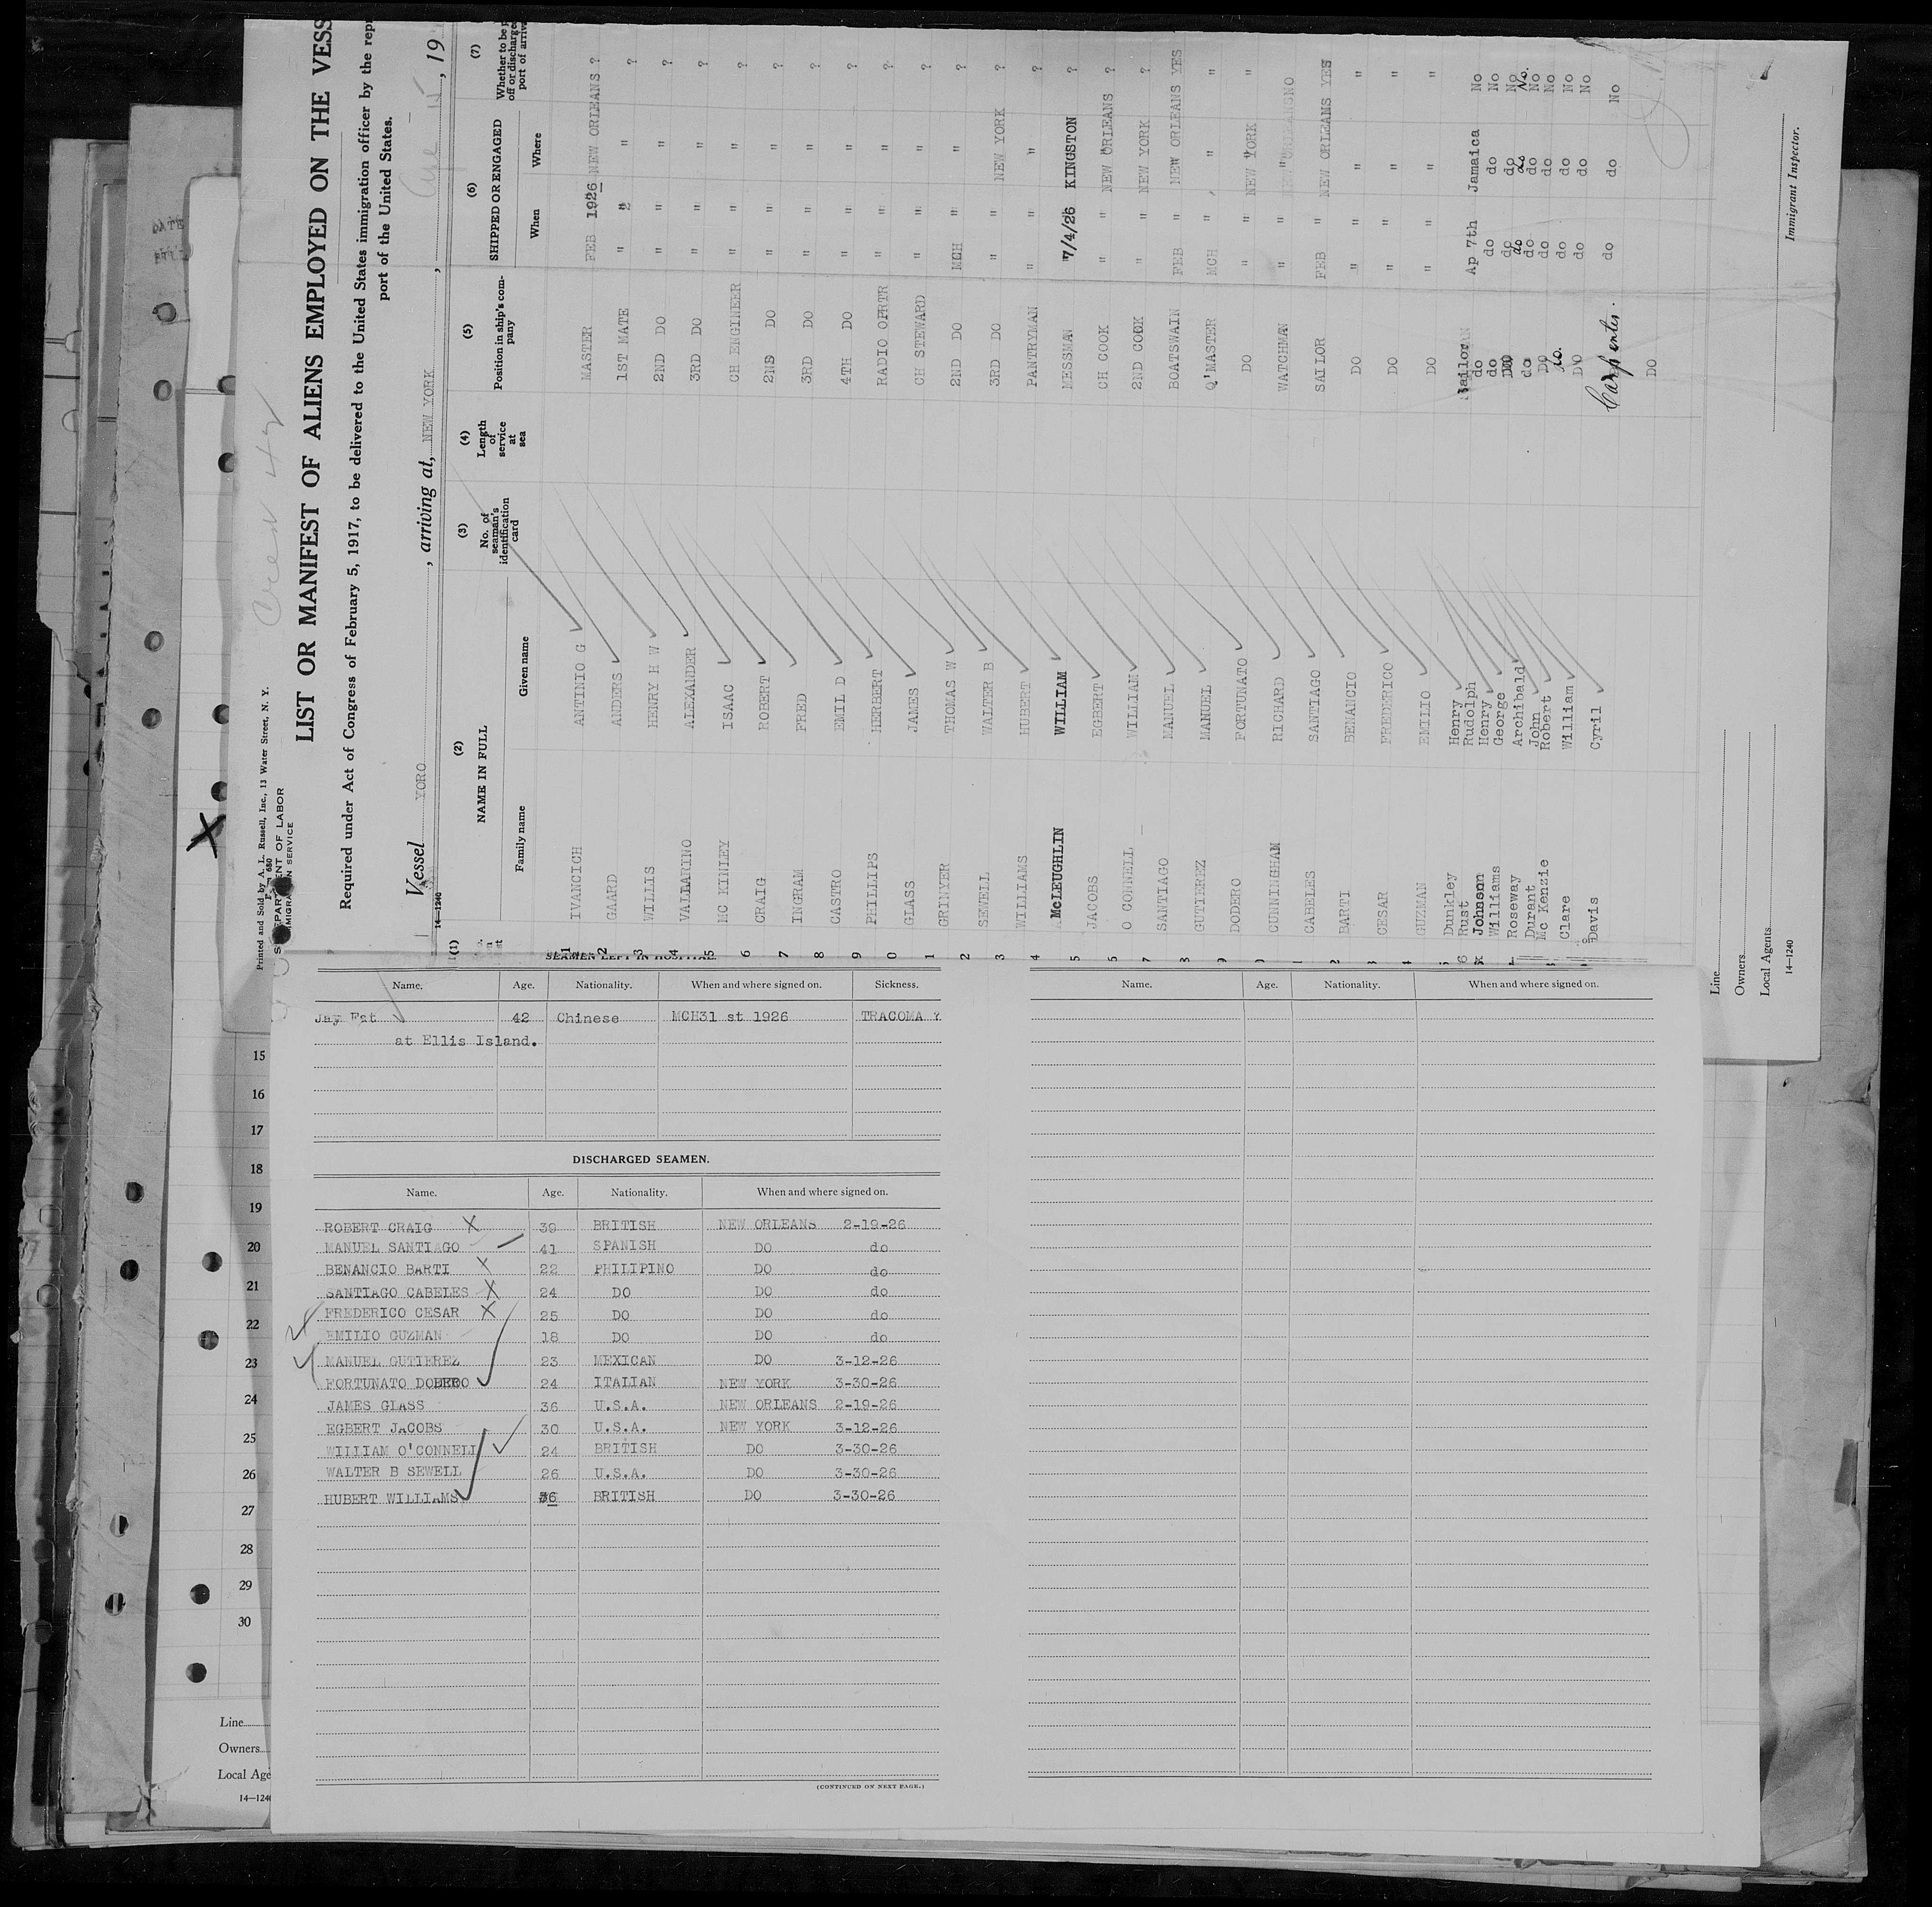 Printed and Sold by A. L. Russell, Inc., 13 Water Street, N. Y.
680
LIST OR MANIFEST OF ALIENS EMPLOYED ON THE VESS
Required under Act of Congress of February 5, 1917, to be delivered to the United States immigration officer by the repr
port of the United States.
Vessel YORO, arriving at, NEW YORK, 19
14—1240
(1) (2) (3) (4) (5) (6) (7)
NAME IN FULL
Family name Given name
No. of seaman's identification card
Length of service at sea
Position in ship's company
SHIPPED OR ENGAGED
When Where
Whether to be
off or discharged
port of arriv
IVANCICH ANTINIO G MASTER FEB 1926 NEW ORLEANS ?
GAARD ANDERS 1ST MATE " " " ?
WILLIS HENRY H W 2ND DO " " " ?
VALLARINO ALEXANDER 3RD DO " " " ?
MC KINLEY ISAAC CH ENGINEER " " " ?
CRAIG ROBERT 2ND DO " " " ?
INGRAM FRED 3RD DO " " " ?
CASTRO EMIL D 4TH DO " " " ?
PHILLIPS HERBERT RADIO OPRTR " " " ?
GLASS JAMES CH STEWARD " " " ?
GRINYER THOMAS W 2ND DO MCH " " ?
SEWELL WALTER B 3RD DO " " NEW YORK ?
WILLIAMS HUBERT PANTRYMAN " " " ?
McLEUGHLIN WILLIAM MESSMAN 7/4/26 KINGSTON ?
JACOBS EGBERT CH COOK " " NEW ORLEANS ?
O CONNELL WILLIAM 2ND COOK " " NEW YORK ?
SANTIAGO MANUEL BOATSWAIN FEB " NEW ORLEANS YES
GUTIEREZ MANUEL Q'MASTER MCH " " "
DODERO FORTUNATO DO " " NEW YORK "
CUNNINGHAM RICHARD WATCHMAN " " " NO
CABELES SANTIAGO SAILOR FEB " NEW ORLEANS YES
BARTI BENANCIO DO " " " "
CESAR FREDERICO DO " " " "
GUZMAN EMILIO DO " " " "
Dunkley Henry Sailor Ap 7th Jamaica No
Rust Rudolph do do do No
Johnson Henry do do do No
Williams George DO do do No.
Roseway Archibald do do do No
Durant John DO do do No
Mc Kenzie Robert do. do do No
Clare William DO do do No
Davis Cyril Carpenter. do do No
DO
Line
Owners
Local Agents
14—1240
Immigrant Inspector.
SEAMEN LEFT IN HOSPITAL
Name. Age. Nationality. When and where signed on. Sickness.
Jay Fat 42 Chinese MCH31 st 1926 TRACOMA ?
at Ellis Island.
DISCHARGED SEAMEN.
Name. Age. Nationality. When and where signed on.
ROBERT CRAIG X 39 BRITISH NEW ORLEANS 2-19-26
MANUEL SANTIAGO 41 SPANISH DO do
BENANCIO BARTI X 22 PHILIPINO DO do
SANTIAGO CABELES X 24 DO DO do
FREDERICO CESAR X 25 DO DO do
EMILIO GUZMAN 18 DO DO do
MANUEL GUTIEREZ 23 MEXICAN DO 3-12-26
FORTUNATO DODERO 24 ITALIAN NEW YORK 3-30-26
JAMES GLASS 36 U.S.A. NEW ORLEANS 2-19-26
EGBERT JACOBS 30 U.S.A. NEW YORK 3-12-26
WILLIAM O'CONNELL 24 BRITISH DO 3-30-26
WALTER B SEWELL 26 U.S.A. DO 3-30-26
HUBERT WILLIAMS 36 BRITISH DO 3-30-26
(CONTINUED ON NEXT PAGE.)
Name. Age. Nationality. When and where signed on.
X
15
16
17
18
19
20
21
22
23
24
25
26
27
28
29
30
Line
Owners
Local Age
14—124